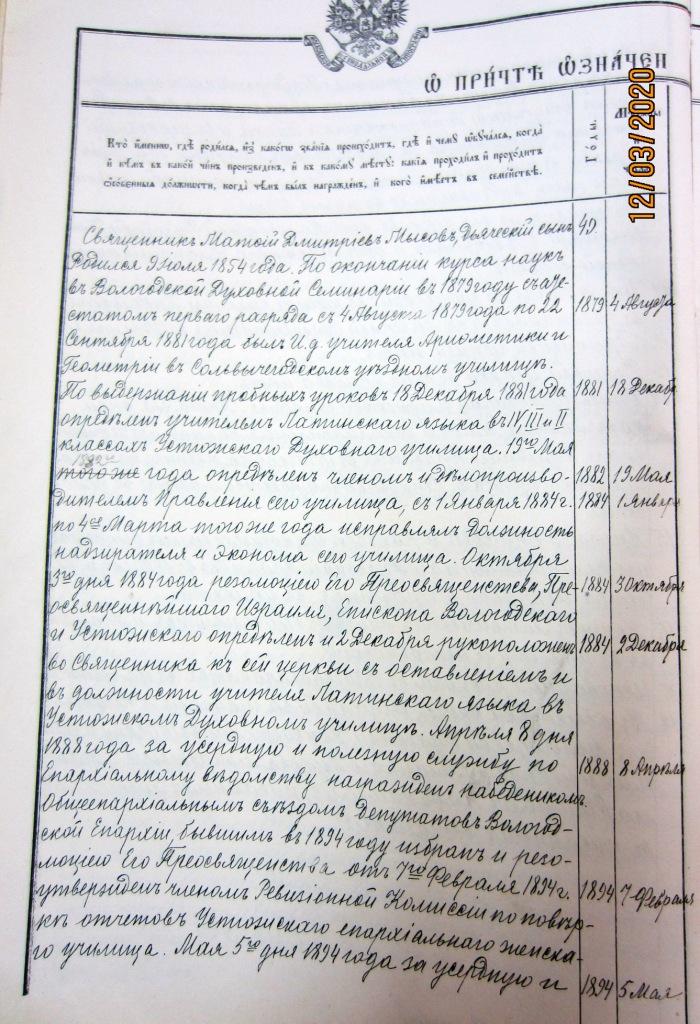 Ѡ ПРИ́ЧТѢ ѠЗНА́ЧЕН
Кто̀ и҆́менно, гдѣ̀ роди́лсѧ, и҆з̾ како́гѡ зва́нїѧ происхо́дитъ, гдѣ̀ и҆ чемꙋ̀ ѡ҆бꙋча́лсѧ, когда̀
и҆ кѣ́мъ въ како́й чи́нъ произведе́нъ, и҆ къ како́мꙋ мѣ́стꙋ: какі̑ѧ проходи́лъ и҆ прохо́дитъ
ѻ҆со́бенныѧ до́лжности, когда̀ чѣ́мъ бы́лъ награжде́нъ, и҆ кого̀ и҆мѣ́етъ въ семе́йствѣ.
Го́ды.
12/03/2020
Священникъ Матѳій Дмитріевъ Мысовъ, дьяческій сынъ 49.
Родился 9 іюля 1854 года. По окончаніи курса наукъ
въ Вологодской Духовной Семинаріи въ 1879 году съ атте-
статомъ перваго разряда съ 4 Августа 1879 года по 22 1879 4 Августа
Сентября 1881 года былъ И. д. учителя Ариѳметики и
Геометріи въ Сольвычегодскомъ уѣздномъ училищѣ.
По выдержаніи пробныхъ уроковъ 18 Декабря 1881 года 1881 18 Декабр.
опредѣленъ учителемъ Латинскаго языка въ IV, III и II
классахъ Устюжскаго Духовнаго училища. 19го Мая
1882
того же года опредѣленъ членомъ и дѣлопроизво- 1882 19 Мая
дителемъ Правленія сего училища, съ 1 Января 1884 г. 1884 1 Января
по 4ое Марта того же года исправлялъ должность
надзирателя и эконома сего училища. Октября
3го дня 1884 года резолюціею Его Преосвященства, Пре- 1884 3 Октября
освященнѣйшаго Израиля, Епископа Вологодскаго
и Устюжскаго опредѣленъ и 2 Декабря рукоположенъ 1884 2 Декабря
во Священника къ сей церкви съ оставленіемъ и
въ должности учителя Латинскаго языка въ
Устюжскомъ Духовномъ училищѣ. Апрѣля 8 дня
1888 года за усердную и полезную службу по 1888 8 Апрѣля
Епархіальному вѣдомству награжденъ набедреникомъ.
Общеепархіальнымъ съѣздомъ депутатовъ Вологод-
ской Епархіи, бывшимъ въ 1894 году избранъ и резо-
люціею Его Преосвященства отъ 7го Февраля 1894 г. 1894 7 Февраля
утвержденъ членомъ Ревизіонной Коммиссіи по повѣр-
кѣ отчетовъ Устюжскаго епархіальнаго женска-
го училища. Мая 5го дня 1894 года за усердную и 1894 5 Мая